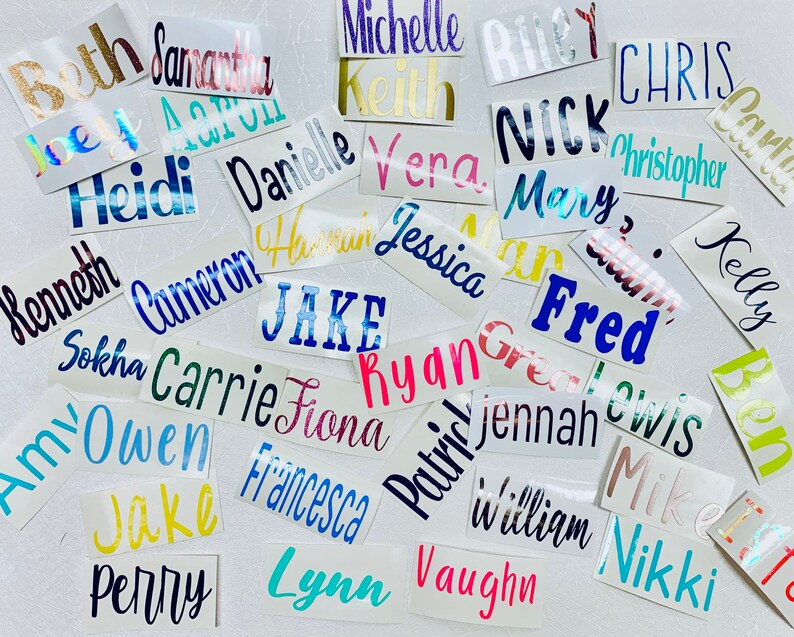 Beth
Samantha
Michelle
Riley
CHRIS
Keith
Joey
Aaron
Nick
Carter
Danielle
Vera
Christopher
Heidi
Mary
Hannah
Jessica
Alan
Quinn
Kelly
Kenneth
Cameron
JAKE
Fred
Sokha
Carrie
Fiona
Ryan
Greg
Lewis
Ben
Amy
Owen
Patrick
Jennah
Mike
Jake
Francesca
William
Nikki
Perry
Lynn
Vaughn